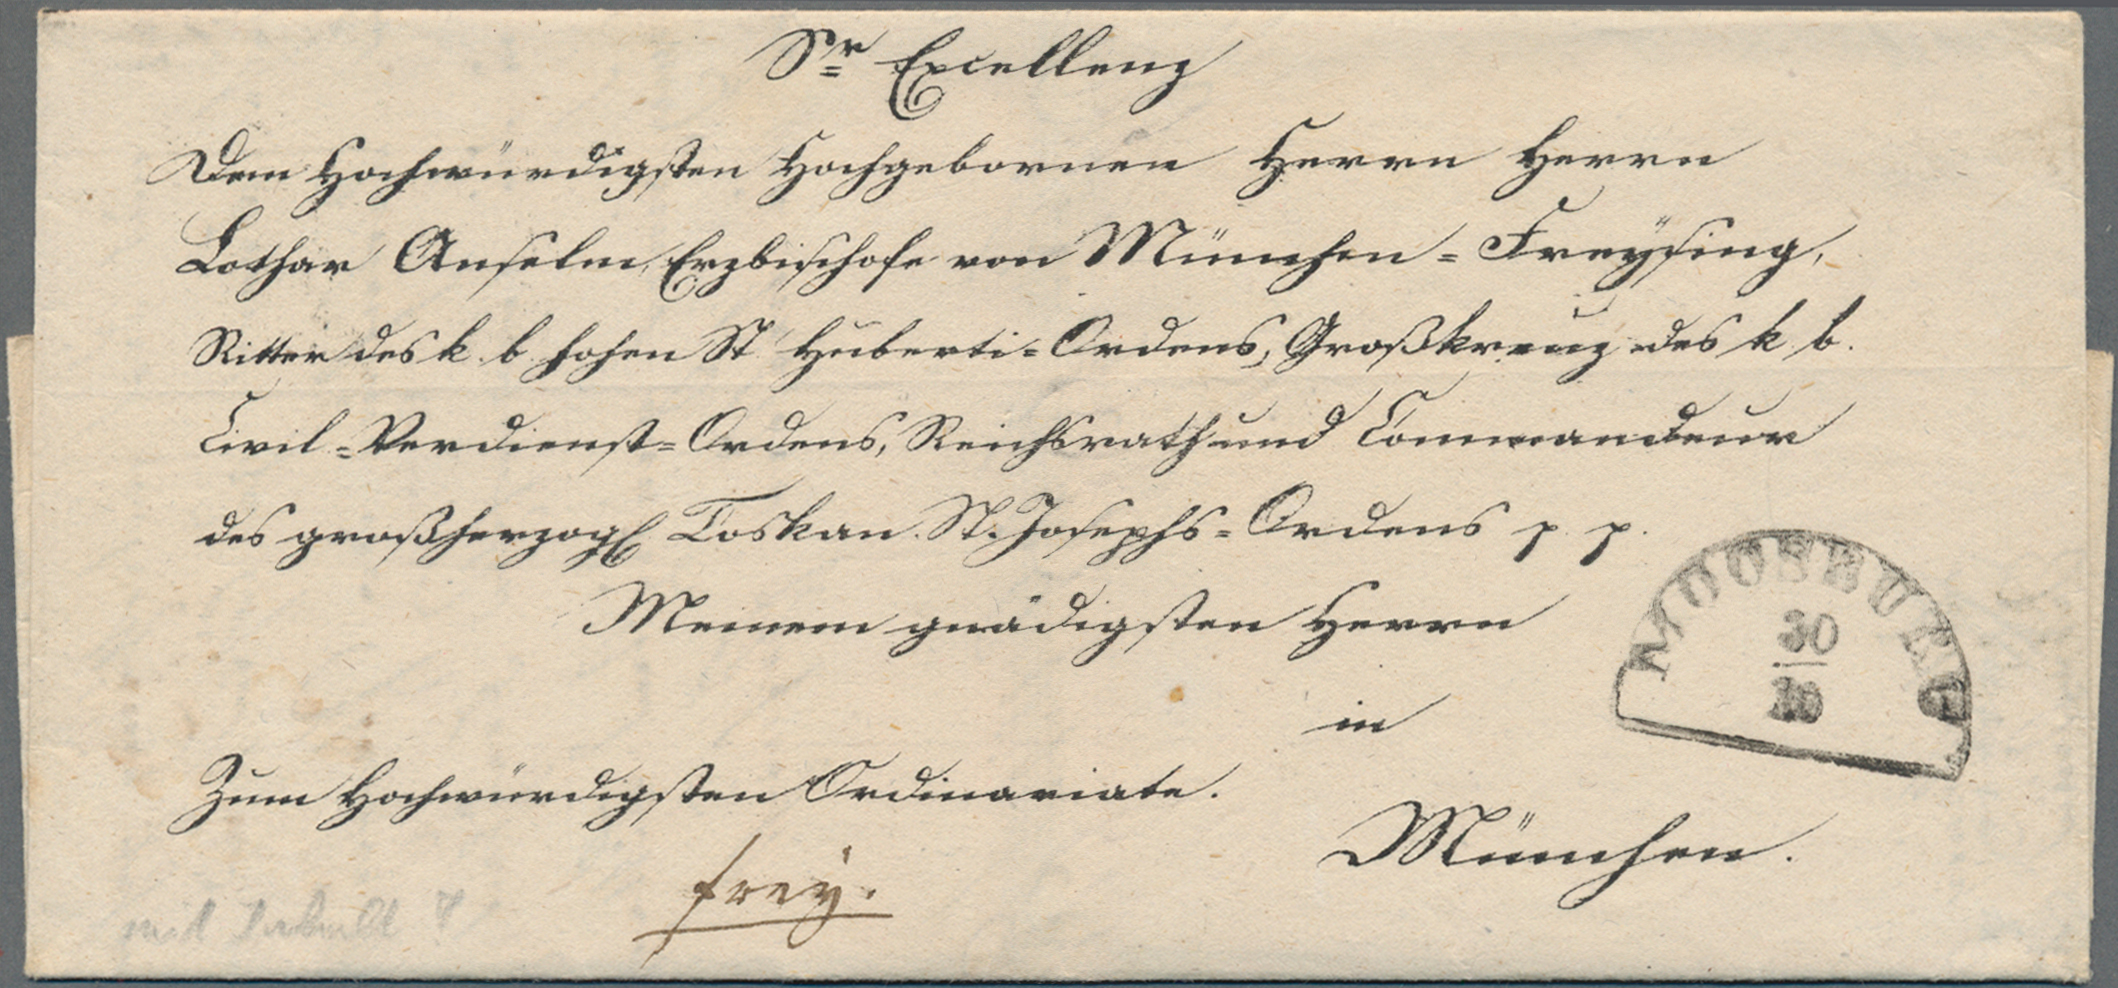 Sr Excellenz
Dem Hochwürdigsten Hochgebornen Herrn Herrn
Lothar Anselm, Erzbischofe von München = Freÿsing,
Ritter des k. b. hohen St Huberti = Ordens, Großkreuz des k. b.
Civil = Verdienst = Ordens, Reichsrath und Commandeur
des großherzogl. Toskan. St. Josephs = Ordens p. p.
Meinem gnädigsten Herrn
in
München.
Zum Hochwürdigsten Ordinariate.
frey.
MOOSBURG
30
mit